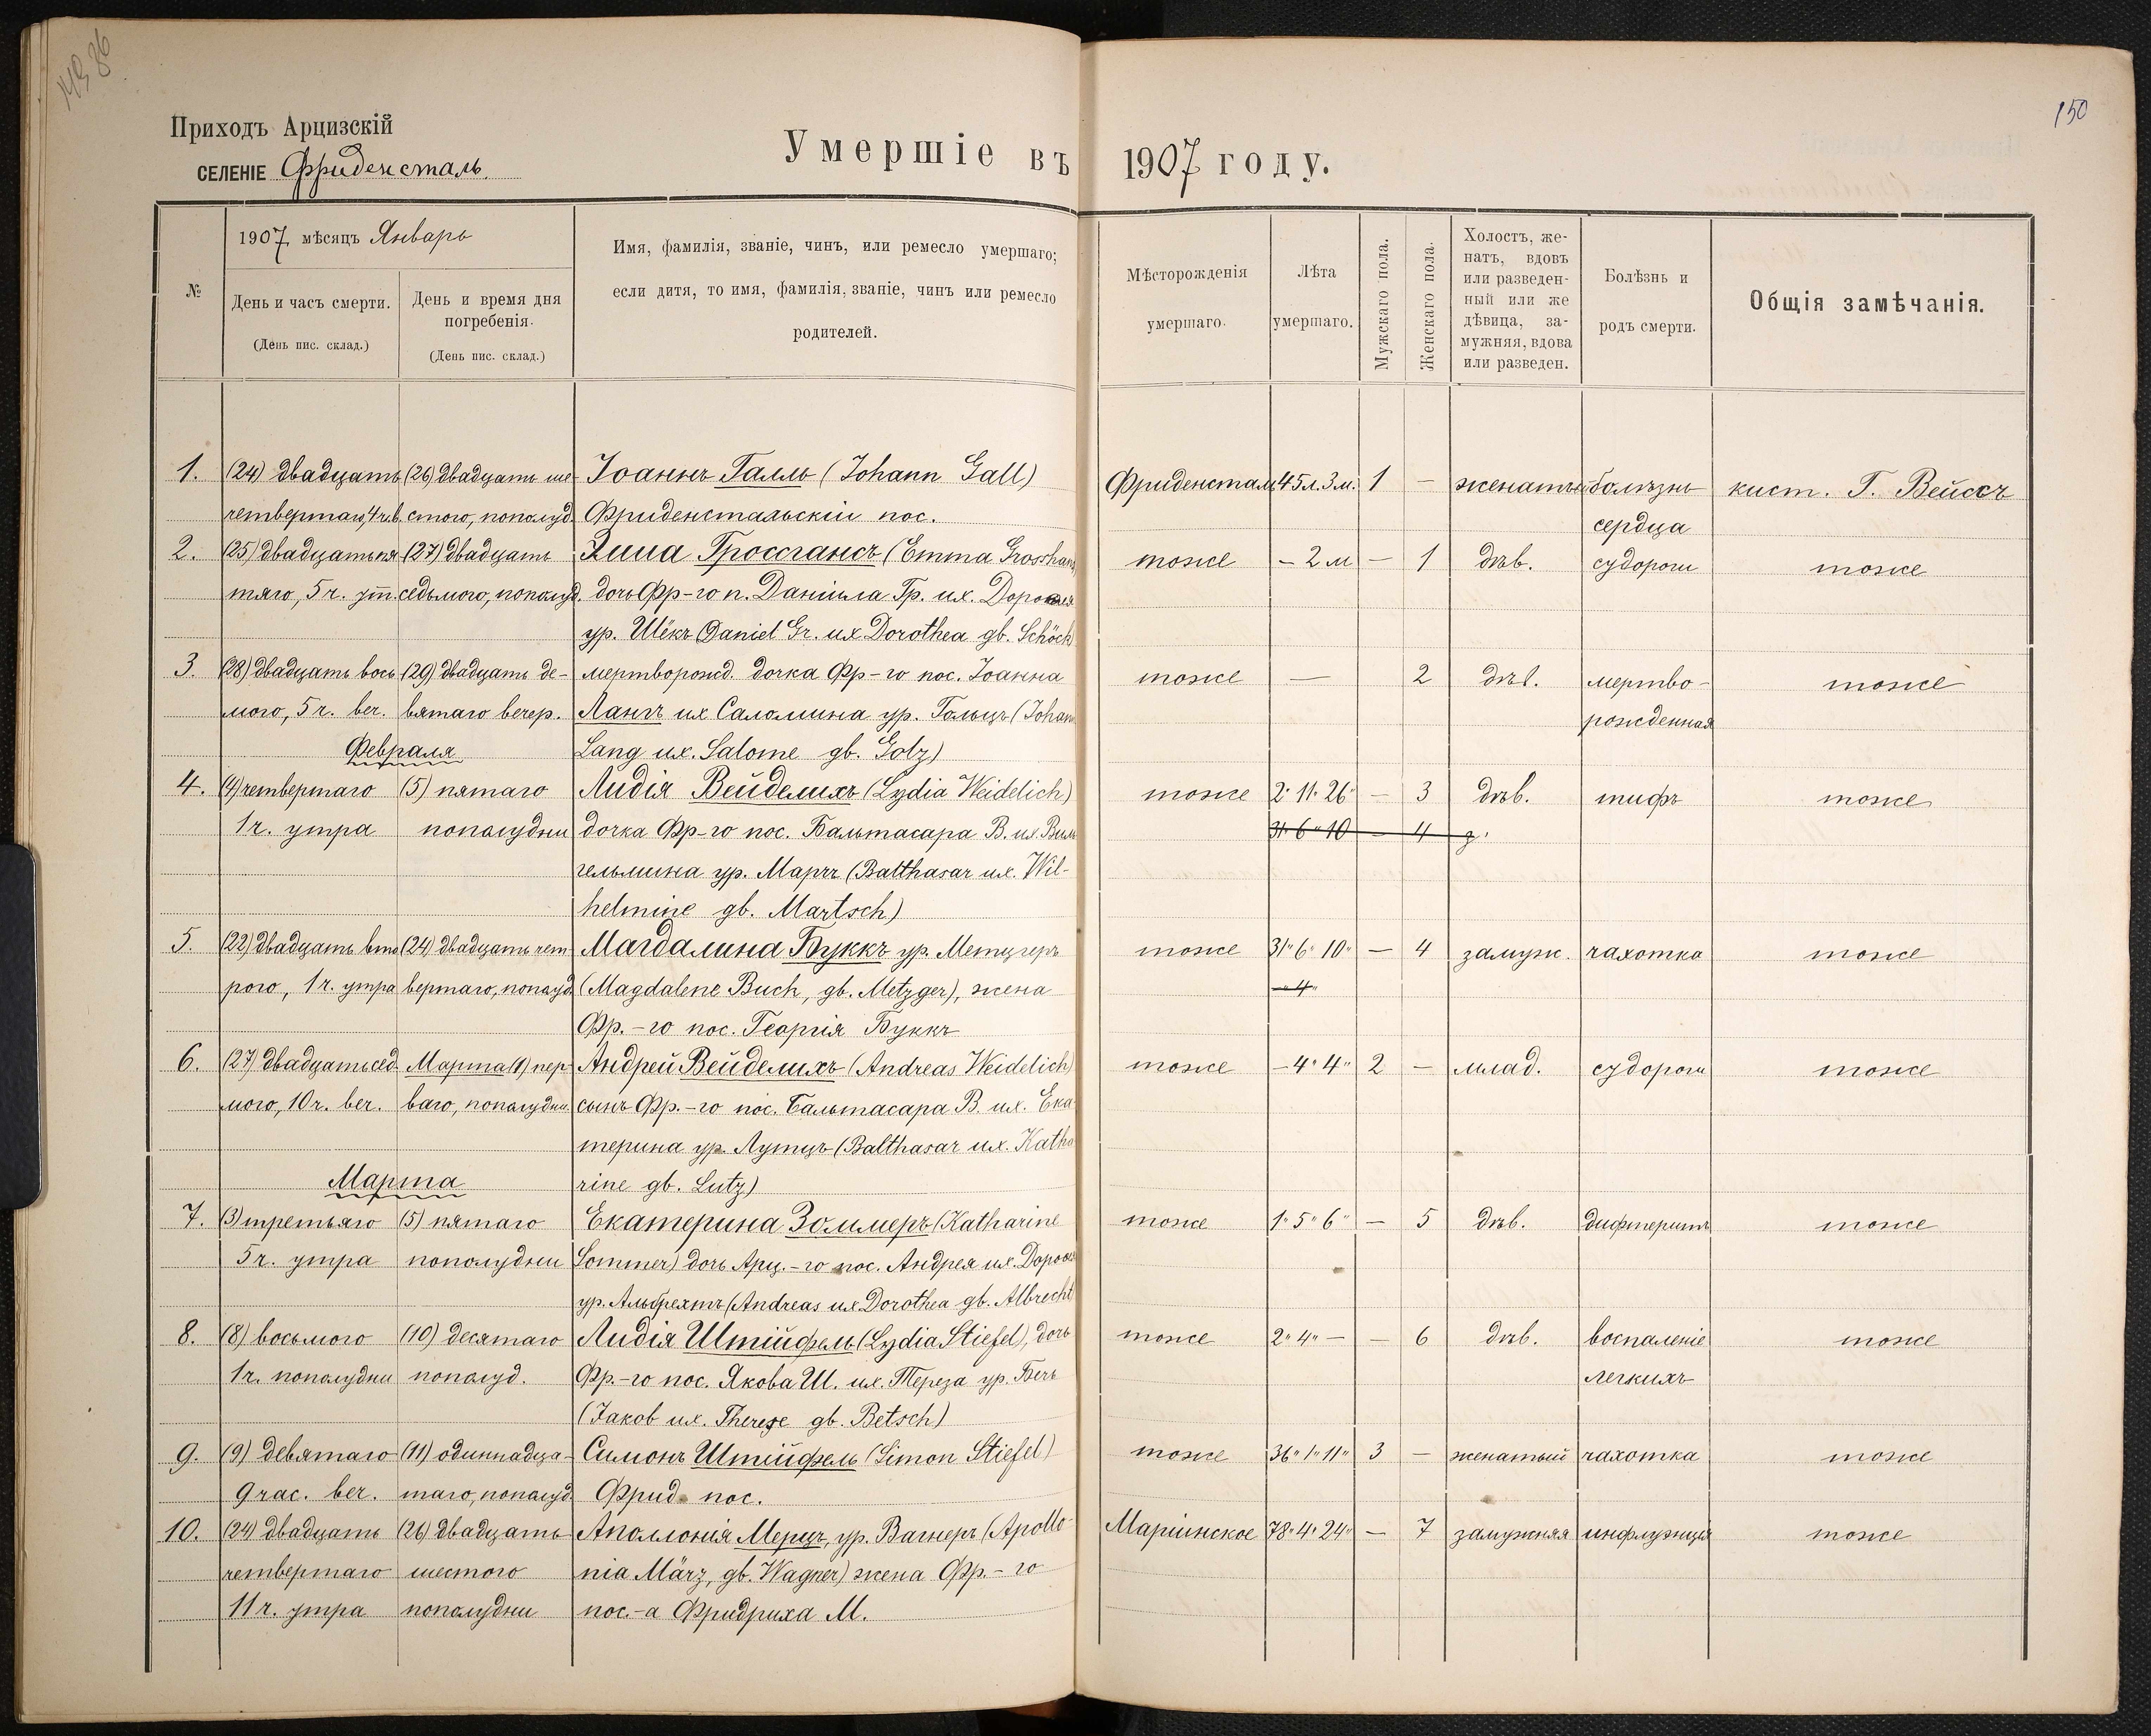 149 86
150
Приходъ Арцизскій
СЕЛЕНІЕ Фриденсталь.
Умершіе въ 1907 году.
№
1907 мѣсяцъ Январь
День и часъ смерти.
(День пис. склад.)
День и время дня погребенія.
(День пис. склад.)
Имя, фамилія, званіе, чинъ, или ремесло умершаго;
если дитя, то имя, фамилія, званіе, чинъ или ремесло
родителей.
Мѣсторожденія
умершаго.
Лѣта
умершаго.
Мужскаго пола.
Женскаго пола.
Холостъ, же-
натъ, вдовъ
или разведен-
ный или же
дѣвица, за-
мужняя, вдова
или разведен.
Болѣзнь и
родъ смерти.
Общія замѣчанія.
1. (24) двадцать (26) двадцать ше- Іоаннъ Галль (Johann Gall) Фриденстал 45л.3м. 1 – женатый болѣзнь кист. Г. Вейссъ
четвертаго, 4ч.в. стого, пополуд. Фриденстальскій пос. сердца
2. (25) двадцать пя (27) двадцать Эмма Гроссгансъ (Emma Grosshans тоже – 2 м – 1 дѣв. судороги тоже
таго, 5 ч. ут. седьмого, пополуд. дочь Фр-го п. Даніила Гр. и ж. Доротея
ур. Шёкъ (Daniel Gr. и ж Dorothea gb. Schöck
3. (28) двадцать вось (29) двадцать де- мертворожд. дочка Фр-го пос. Іоанна тоже — 2 дѣв. мертво- тоже
мого, 5 ч. веч. вятаго вечер. Лангъ и ж Саломина ур. Гольцъ (Johann рожденная
Февраля Lang и ж. Salome gb. Golz)
4. (4) четвертаго (5) пятаго Лидія Вейделихъ (Lydia Weidelich) тоже 2" 11" 26" – 3 дѣв. тифъ тоже
1 ч. утра пополудни дочка Фр-го пос. Бальтасара В. и ж. Виль 31" 6" 10 – 4 з.
гельмина ур. Марчъ (Balthasar и ж. Wil-
helmine gb. Martsch)
5. (22) двадцать вто (24) двадцать чет- Магдалина Буккъ ур. Метцгеръ тоже 31" 6" 10" – 4 замуж. чахотка тоже
рого, 1 ч. утра вертаго, пополуд. (Magdalene Buch, gb. Metzger), жена – " 4"
Фр.-го пос. Георгія Буккъ
6. (27) двадцать сед. Марта (1) пер- Андрей Вейделихъ (Andreas Weidelich) тоже – 4" 4" 2 – млад. судороги тоже
мого, 10 ч. веч. ваго, пополудни. сынъ Фр.-го пос. Бальтасара В. и ж. Ека-
терина ур. Лутцъ (Balthasar и ж. Katha
Марта rine gb. Lutz)
7. (3) третьяго (5) пятаго Екатерина Зоммеръ (Katharine тоже 1" 5" 6" – 5 дѣв. дифтеритъ тоже
5 ч. утра пополудни Sommer) дочь Арц.-го пос. Андрея и ж. Дороѳея
ур. Альбрехтъ (Andreas и ж Dorothea gb. Albrecht
8. (8) восьмого (10) десятаго Лидія Штійфель (Lydia Stiefel), дочь тоже 2" 4" – – 6 дѣв. воспаленіе тоже
1 ч. пополудни пополуд. Фр.-го пос. Якова Ш. и ж. Тереза ур. Бечъ легкихъ
(Jakob и ж. Therese gb. Betsch)
9. (9) девятаго (11) одиннадца- Симонъ Штійфель (Simon Stiefel) тоже 36" 1" 11" 3 – женатый чахотка тоже
9 час. веч. таго, пополуд. Фрид. пос.
10. (24) двадцать (26) двадцать Аполлонія Мерцъ, ур. Вагнеръ (Apollo- Маріинское 78" 4" 24" – 7 замужняя инфлуэнція тоже
четвертаго шестого nia März, gb. Wagner) жена Фр.-го
11 ч. утра пополудни пос.-а Фридриха М.